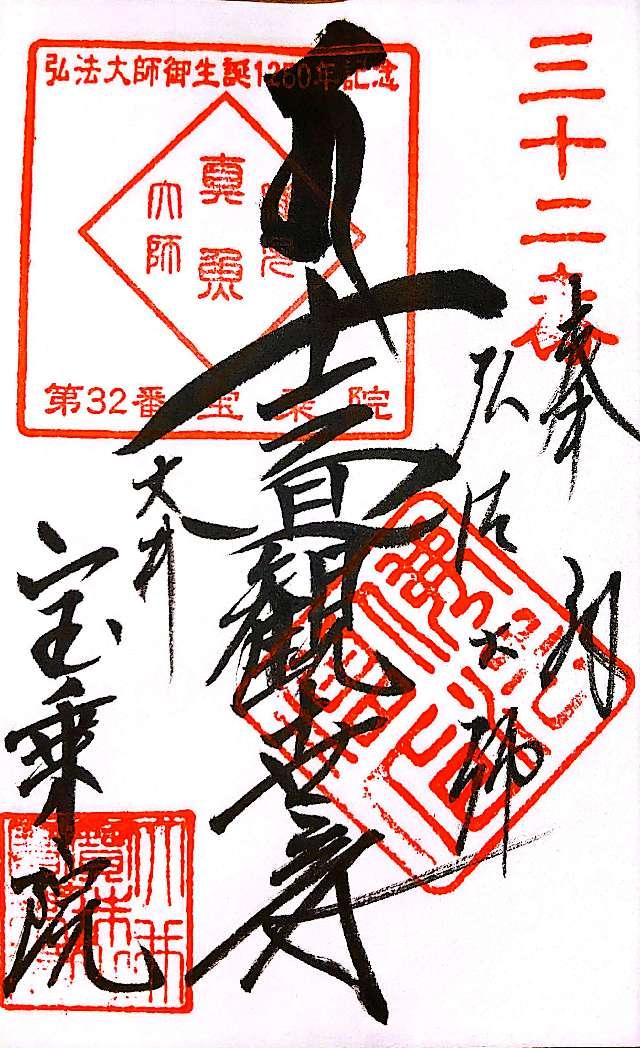 三十二番
奉拝
弘法大師
十一面觀世音
大井
宝乗院
弘法大師御生誕1250年記念
真魚
大師
第32番宝乗院